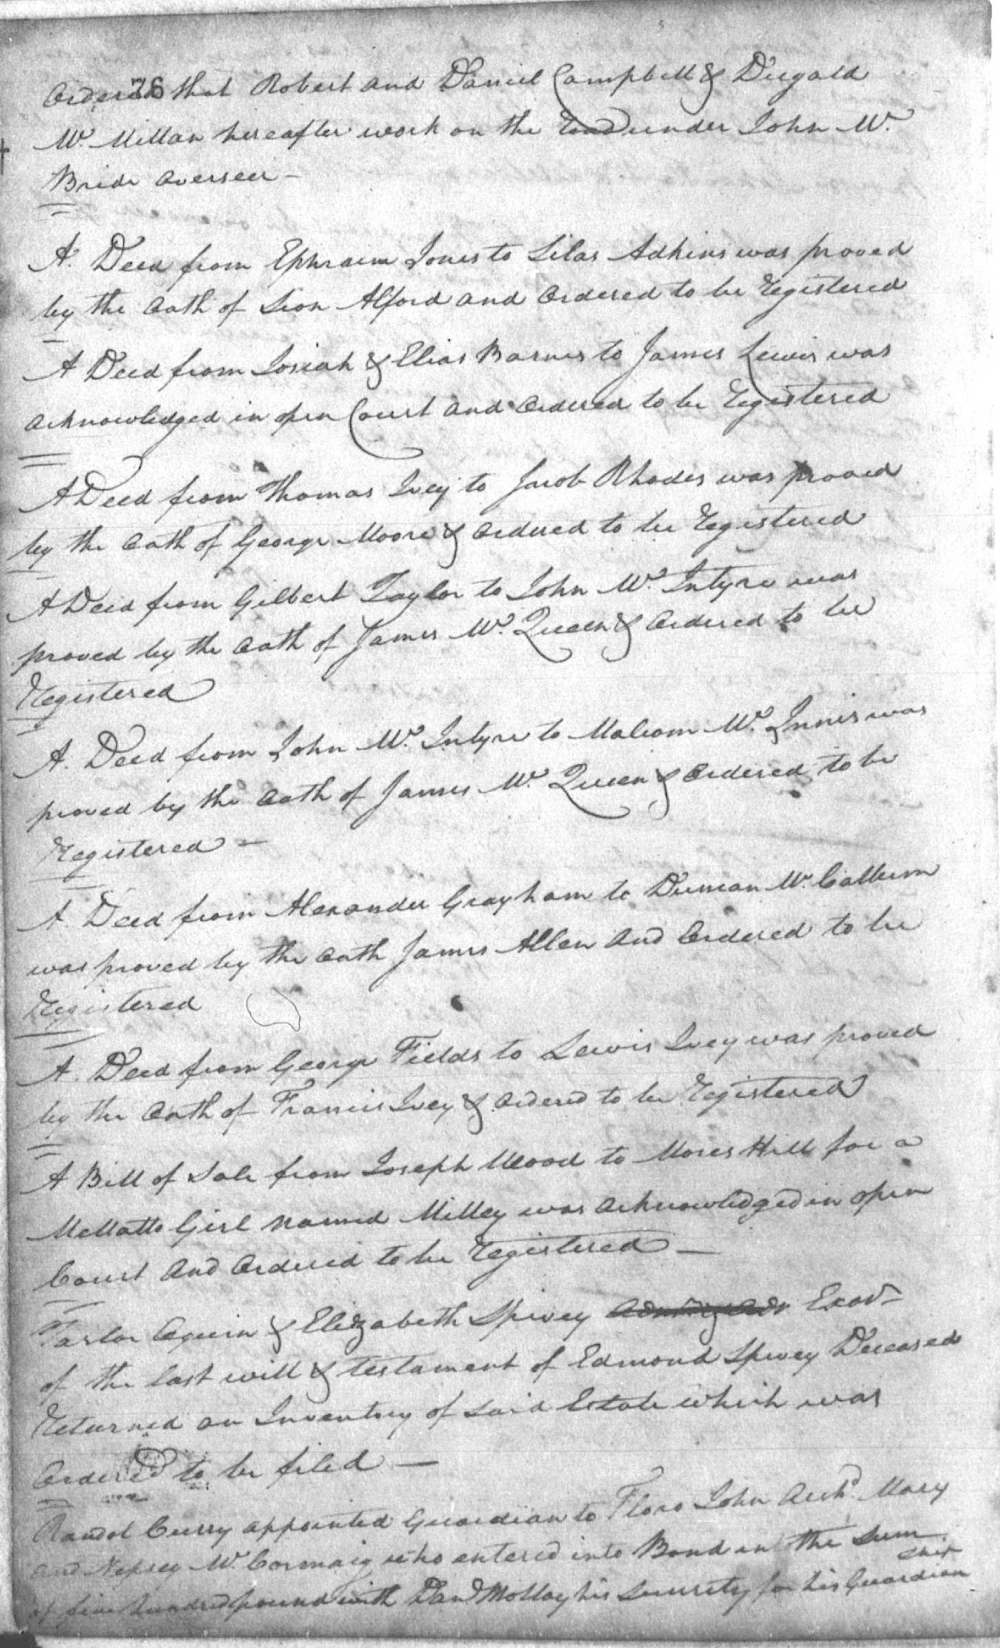 76
Ordered that Robert and Daniel Campbell & Dugald
Mc. Millan hereafter work on the road under John Mc.
Bride overseer -
A. Deed from Ephraim Jones to Silas Adkins was proved
by the oath of Sion Alford and Ordered to be Registered
A Deed from Josiah & Elias Barnes to James Lewis was
acknowledged in open Court and ordered to be Registered
A Deed from Thomas Ivey to Jacob Rhodes was proved
by the oath of George Moore & Ordered to be Registered
A Deed from Gilbert Taylor to John Mc. Intyre was
proved by the oath of James Mc. Queen & Ordered to be
Registered
A. Deed from John Mc. Intyre to Malcom Mc. Innis was
proved by the oath of James Mc. Queen & Ordered to be
Registered -
A Deed from Alexander Grayham to Duncan Mc. Callum
was proved by the oath James Allen and Ordered to be
Registered
A. Deed from George Fields to Lewis Ivey was proved
by the oath of Francis Ivey & ordered to be Registered
A Bill of Sale from Joseph Wood to Moses Hill for a
Mollatto Girl named Milley was acknowledged in open
Court and Ordered to be Registered -
& Elizabeth Spivey Exors
of the last will & testament of Edmond Spivey Deceased
Returned an Inventory of said Estate which was
Ordered to be filed -
Randol Curry appointed Guardian to Flora John Archd. Mary
and Mc. Cormaig who entered into Bond in the sum
of five hundred pound with Danl Molloy his security for his Guardian
ship